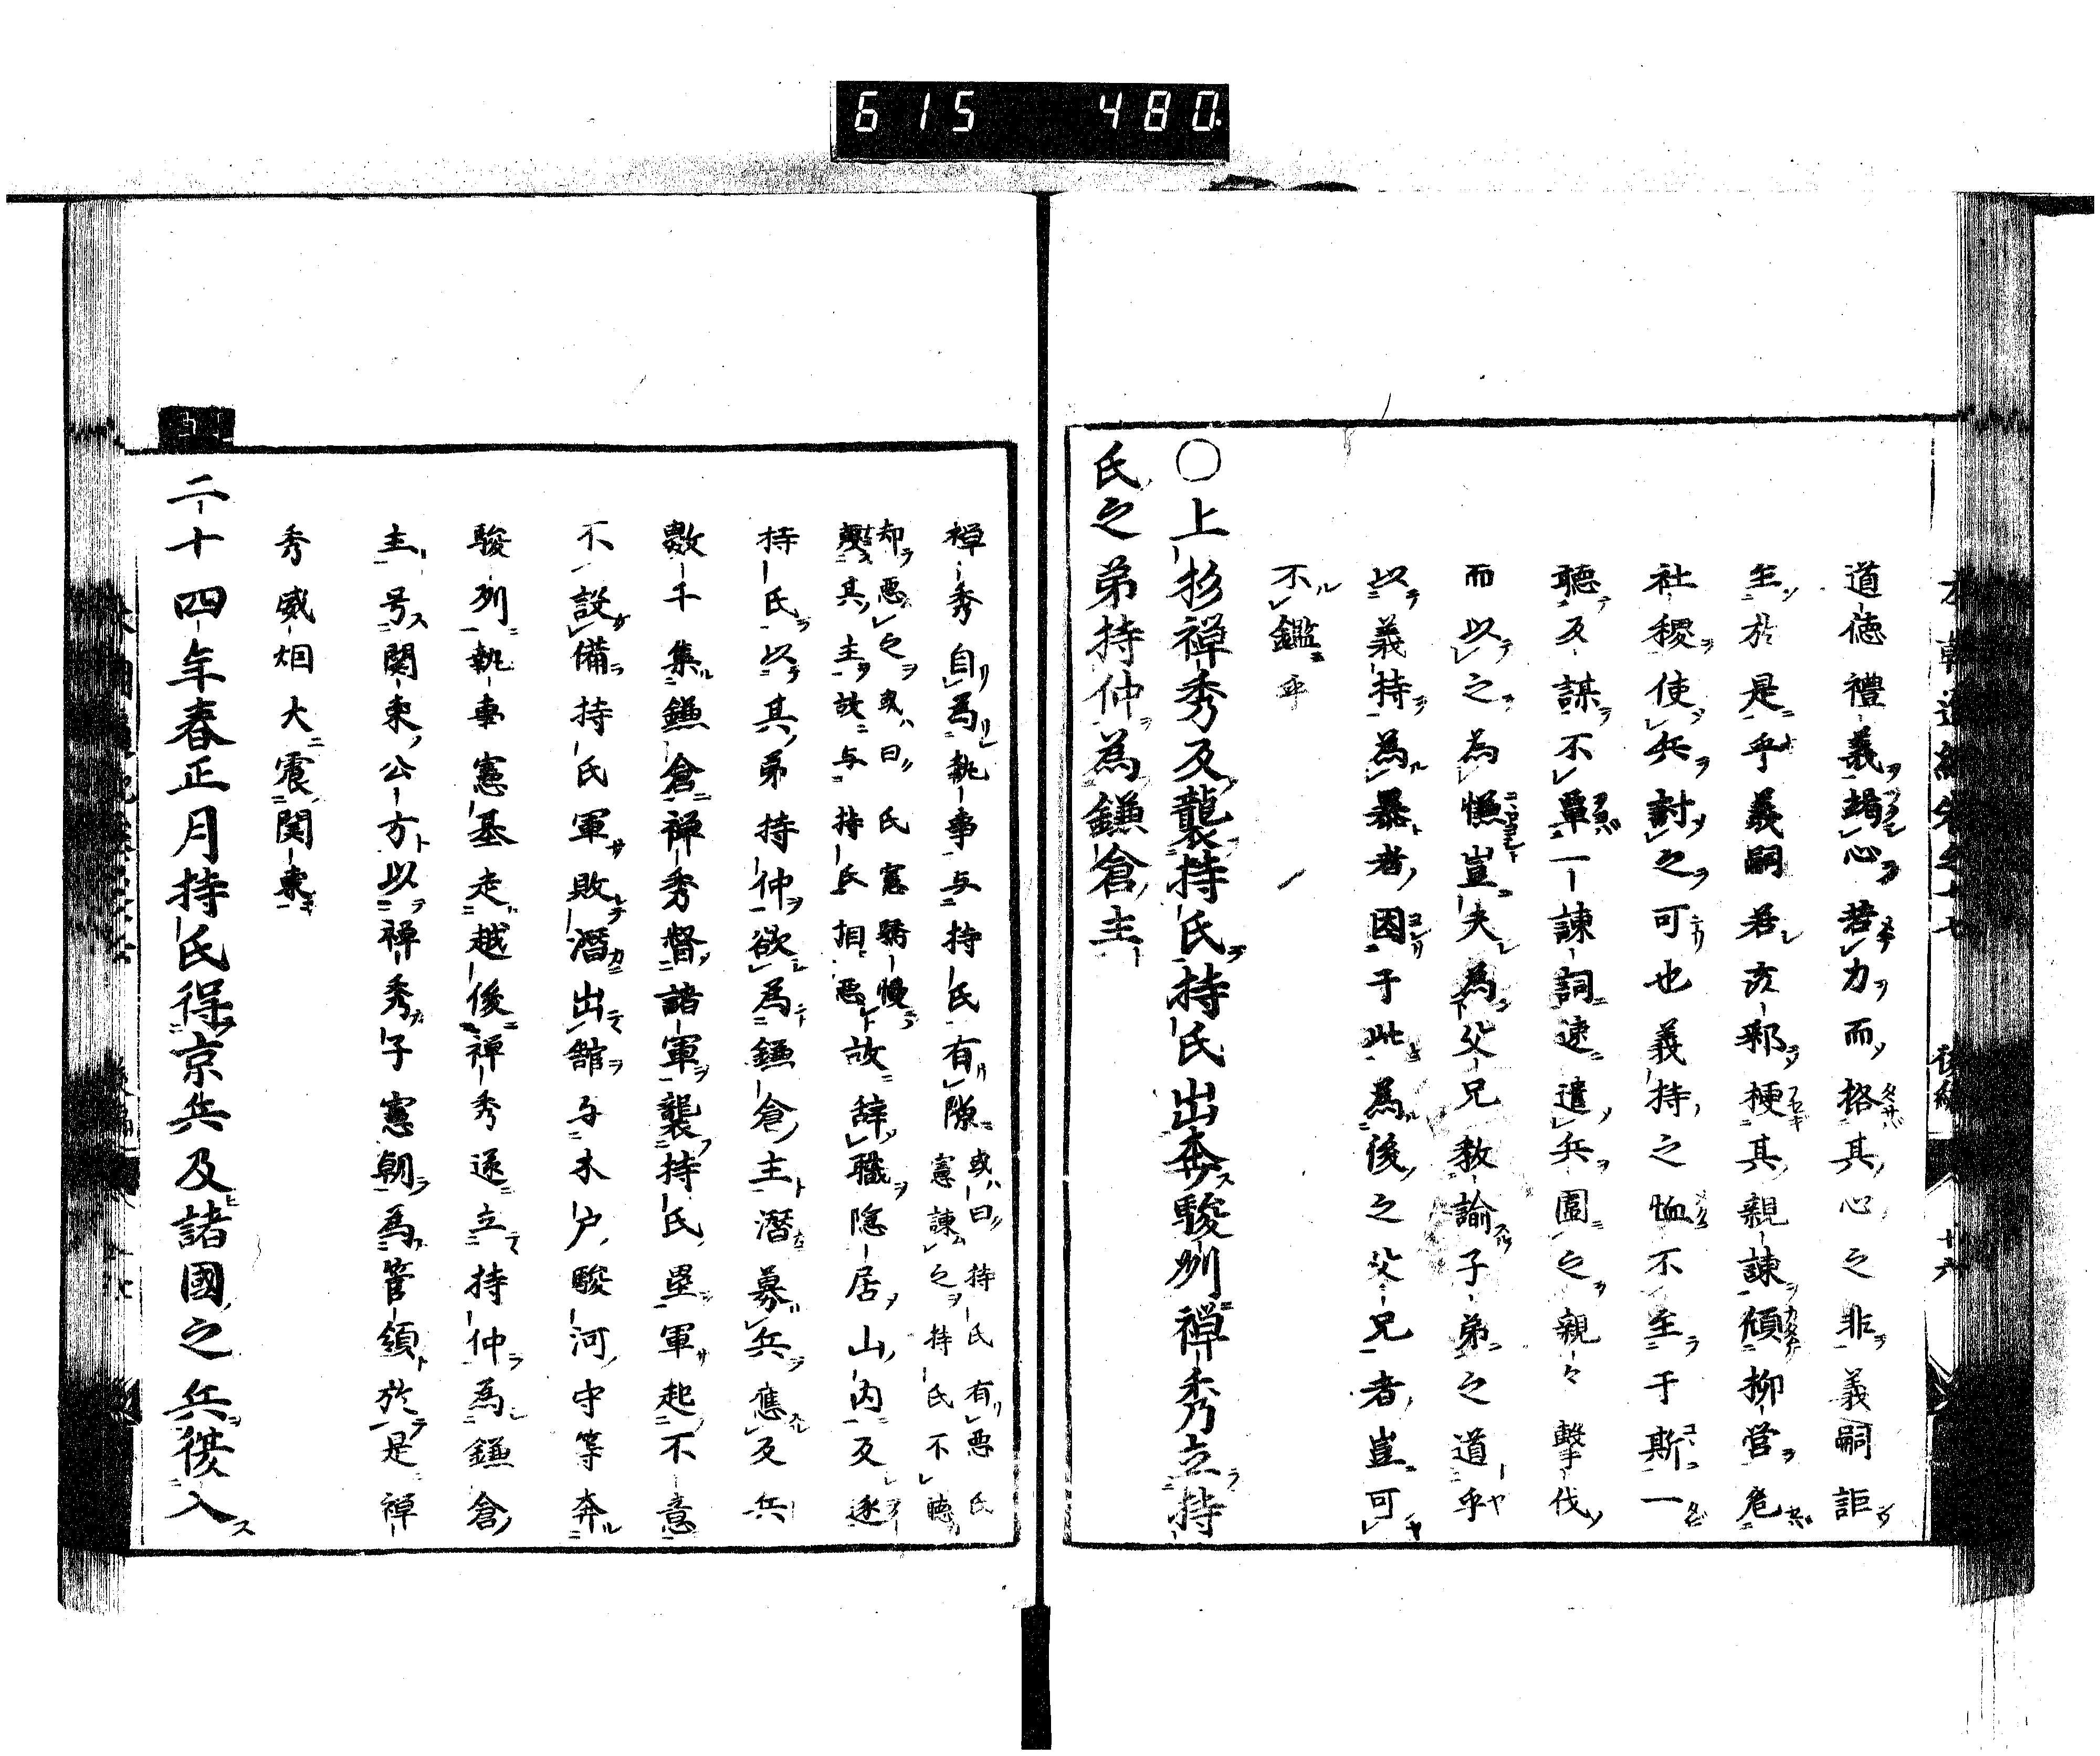 615 480
道德禮義竭心若力而格其心之非義嗣詎
至於是乎義嗣若友邪梗其親諫傾柳營危
社稷使兵討之可也義持之恤不至于斯一
聽及謀不單一諫詞遽遣兵圍之親々擊伐
而以之為慊豈夫為父兄教諭子弟之道乎
以義持為暴者因于此為後之父兄者豈可
不鑑乎
〇上杉禅秀及襲持氏持氏出奔駿州禅秀立持
氏之弟持仲為鎌倉主
禅秀自為執事与持氏有隙或曰持氏有悪氏
憲諫之持氏不聴
却悪之或曰氏憲驕慢
其主故与持氏相悪故辞職隠居山内及逐
持氏以其弟持仲欲為鎌倉主潜募兵應及兵
數千集鎌倉禅秀督諸軍襲持氏塁軍起不意
不設備持氏軍敗潜出館与木戸駿河守等奔
駿州執事憲基走越後禅秀遂立持仲為鎌倉
主号関東公方以禅秀子憲朝為管領於是禅
秀威烟大震関東
二十四年春正月持氏得京兵及諸國之兵復入